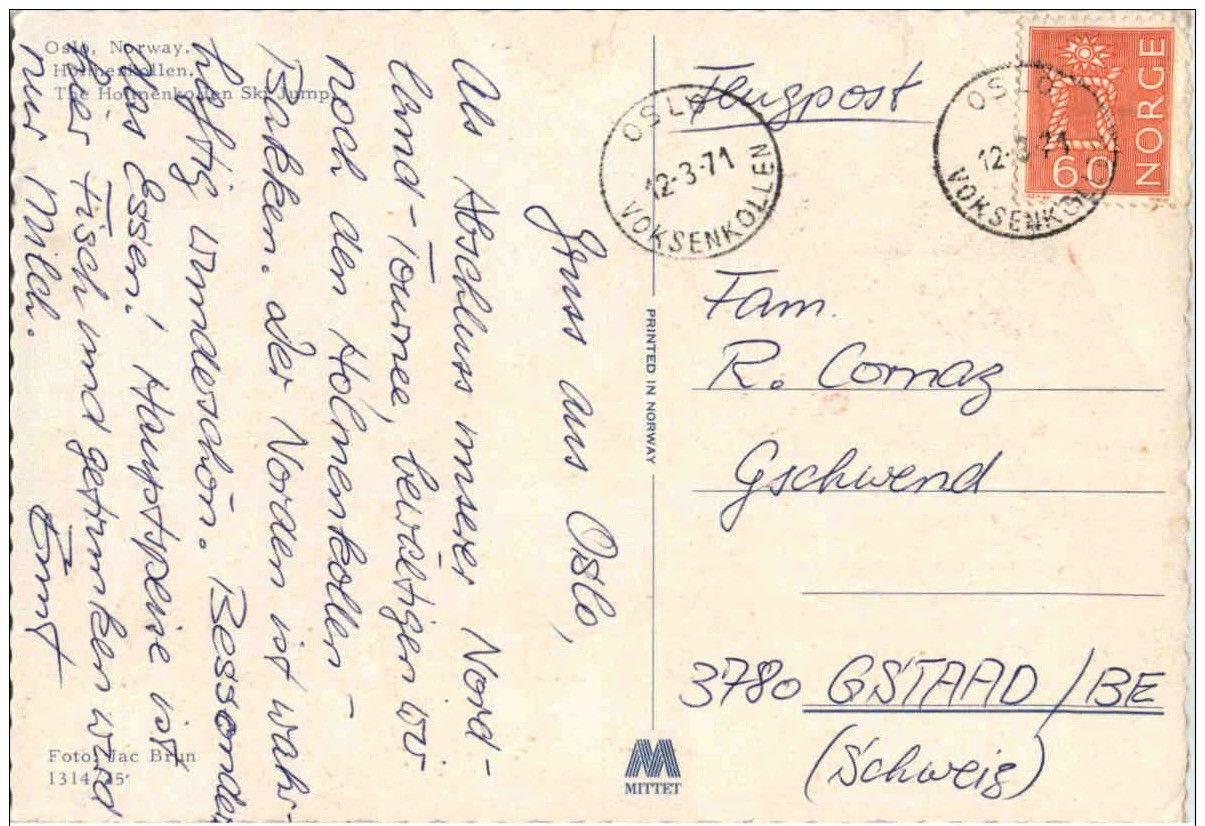 Oslo, Norway.
Holmenkollen.
The Holmenkollen Ski Jump.
Gruss aus Oslo,
Als Abschluss unserer Nord-
land-Tournee, bewältigen wir
noch den Holmenkollen-
Bakken. Der Norden ist wahr-
haftig wunderschön. Bessonders
das Essen! Hauptspeise ist
hier Fisch und getrunken wird
nur Milch.
Ernst
Foto: Jac Brun
1314/45
PRINTED IN NORWAY
MITTET
OSLO
12-3-71
VOKSENKOLLEN
OSLO
12-3-71
VOKSENKOLL
60 NORGE
Flugpost
Fam.
R. Cornaz
Gschwend
3780 GSTAAD/BE
(Schweiz)